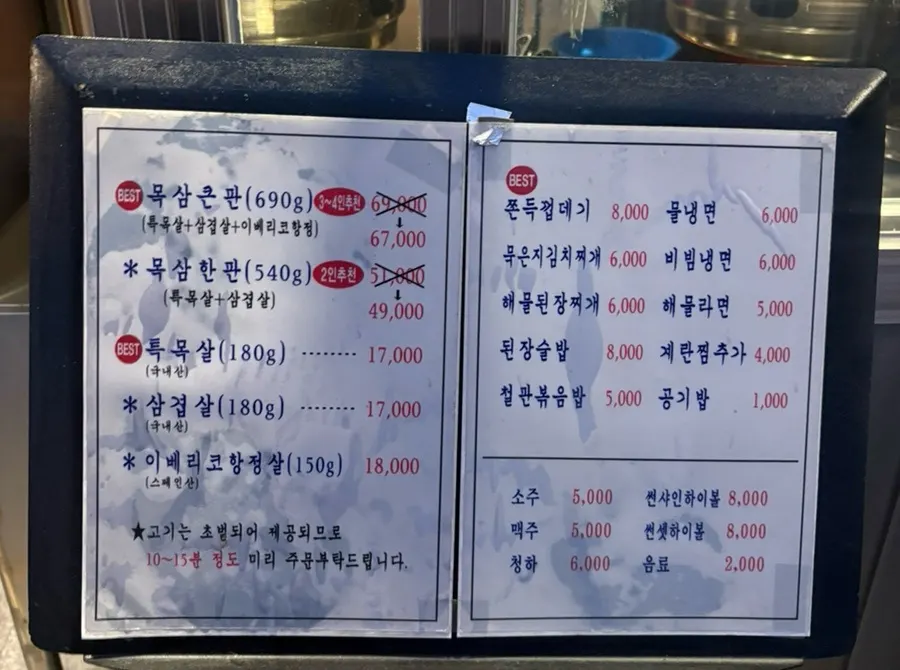 BEST 목삼큰판(690g) 3~4인추천 69,000
(특목살+삼겹살+이베리코항정) 67,000
* 목삼한판(540g) 2인추천 51,000
(특목살+삼겹살) 49,000
BEST 특목살(180g) ········ 17,000
(국내산)
* 삼겹살(180g) ········ 17,000
(국내산)
* 이베리코항정살(150g) 18,000
(스페인산)
★고기는 초벌되어 제공되므로
10~15분 정도 미리 주문부탁드립니다.
BEST
쫀득껍데기 8,000 물냉면 6,000
묵은지김치찌개 6,000 비빔냉면 6,000
해물된장찌개 6,000 해물라면 5,000
된장술밥 8,000 계란찜추가 4,000
철판볶음밥 5,000 공기밥 1,000
소주 5,000 썬샤인하이볼 8,000
맥주 5,000 썬셋하이볼 8,000
청하 6,000 음료 2,000